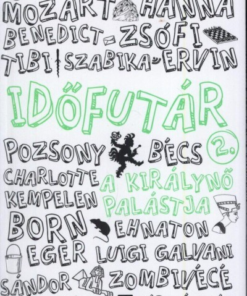 MOZART HANNA
BENEDICT ZSÓFI
TIBI SZABIKA ERVIN
IDŐFUTÁR
POZSONY BÉCS 2.
CHARLOTTE A KIRÁLYNŐ
KEMPELEN PALÁSTJA
BORN EHNATON
EGER LUIGI GALVANI
SÁNDOR ZOMBIVÉCÉ